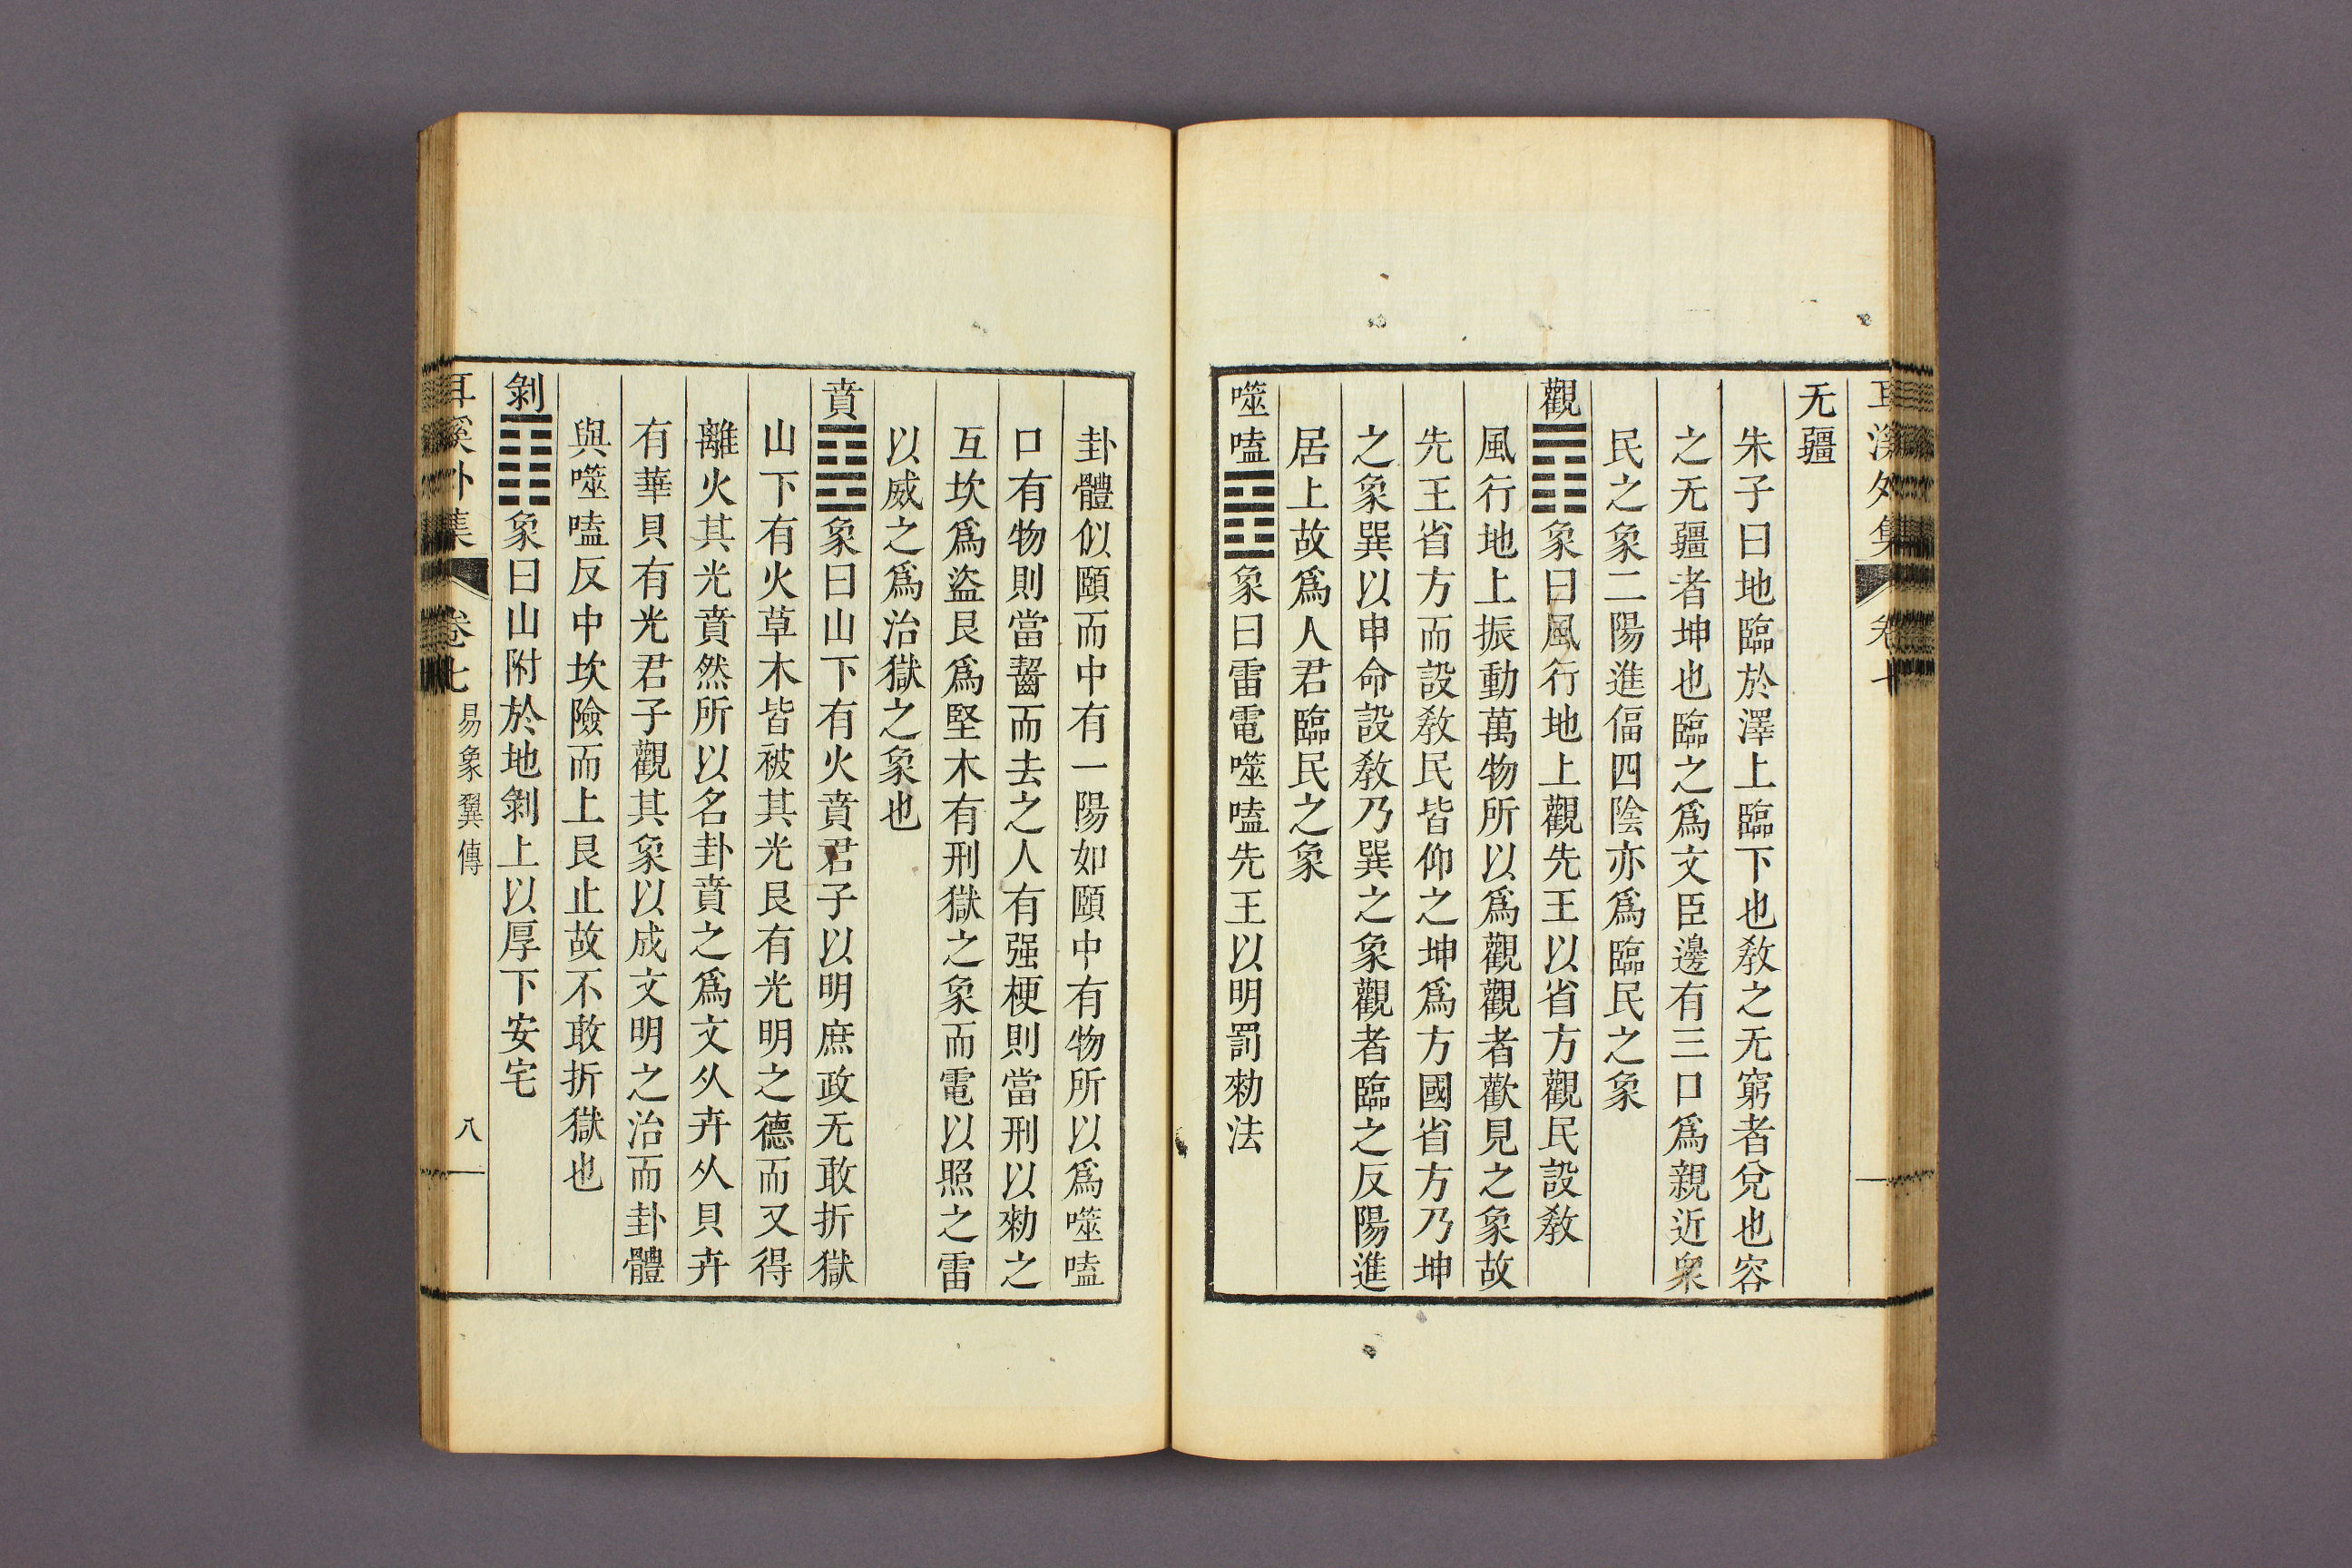 耳溪外集 卷七
无疆
朱子曰地臨於澤上臨下也敎之无窮者兌也容
之无疆者坤也臨之爲文臣邊有三口爲親近衆
民之象二陽進偪四陰亦爲臨民之象
觀䷓象曰風行地上觀先王以省方觀民設敎
風行地上振動萬物所以爲觀觀者歡見之象故
先王省方而設敎民皆仰之坤爲方國省方乃坤
之象巽以申命設敎乃巽之象觀者臨之反陽進
居上故爲人君臨民之象
噬嗑䷔象曰雷電噬嗑先王以明罰勑法
卦體似頤而中有一陽如頤中有物所以爲噬嗑
口有物則當齧而去之人有强梗則當刑以勑之
互坎爲盜艮爲堅木有刑獄之象而電以照之雷
以威之爲治獄之象也
賁䷕象曰山下有火賁君子以明庶政无敢折獄
山下有火草木皆被其光艮有光明之德而又得
離火其光賁然所以名卦賁之爲文从卉从貝卉
有華貝有光君子觀其象以成文明之治而卦體
與噬嗑反中坎險而上艮止故不敢折獄也
剝䷖象曰山附於地剝上以厚下安宅
耳溪外集 卷七 易象翼傳 八